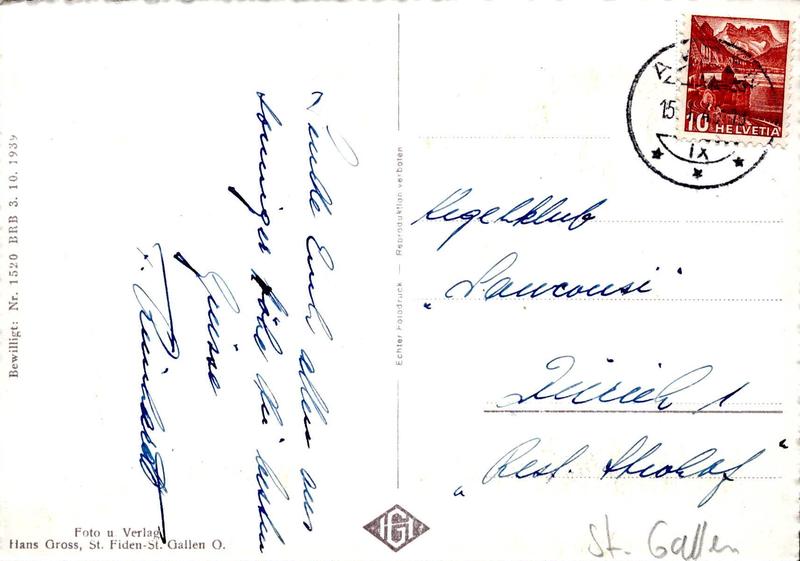 Bewilligt: Nr. 1520 BRB 3. 10. 1939
Foto u Verlag
Hans Gross, St. Fiden-St. Gallen O.
Sende Euch allen aus
sonniger Höhe die besten
Grüsse
Echter Fotodruck — Reproduktion verboten
HG
10 HELVETIA
15
IX
Kegelklub
"
Zürich 1
"Rest. "
St. Gallen